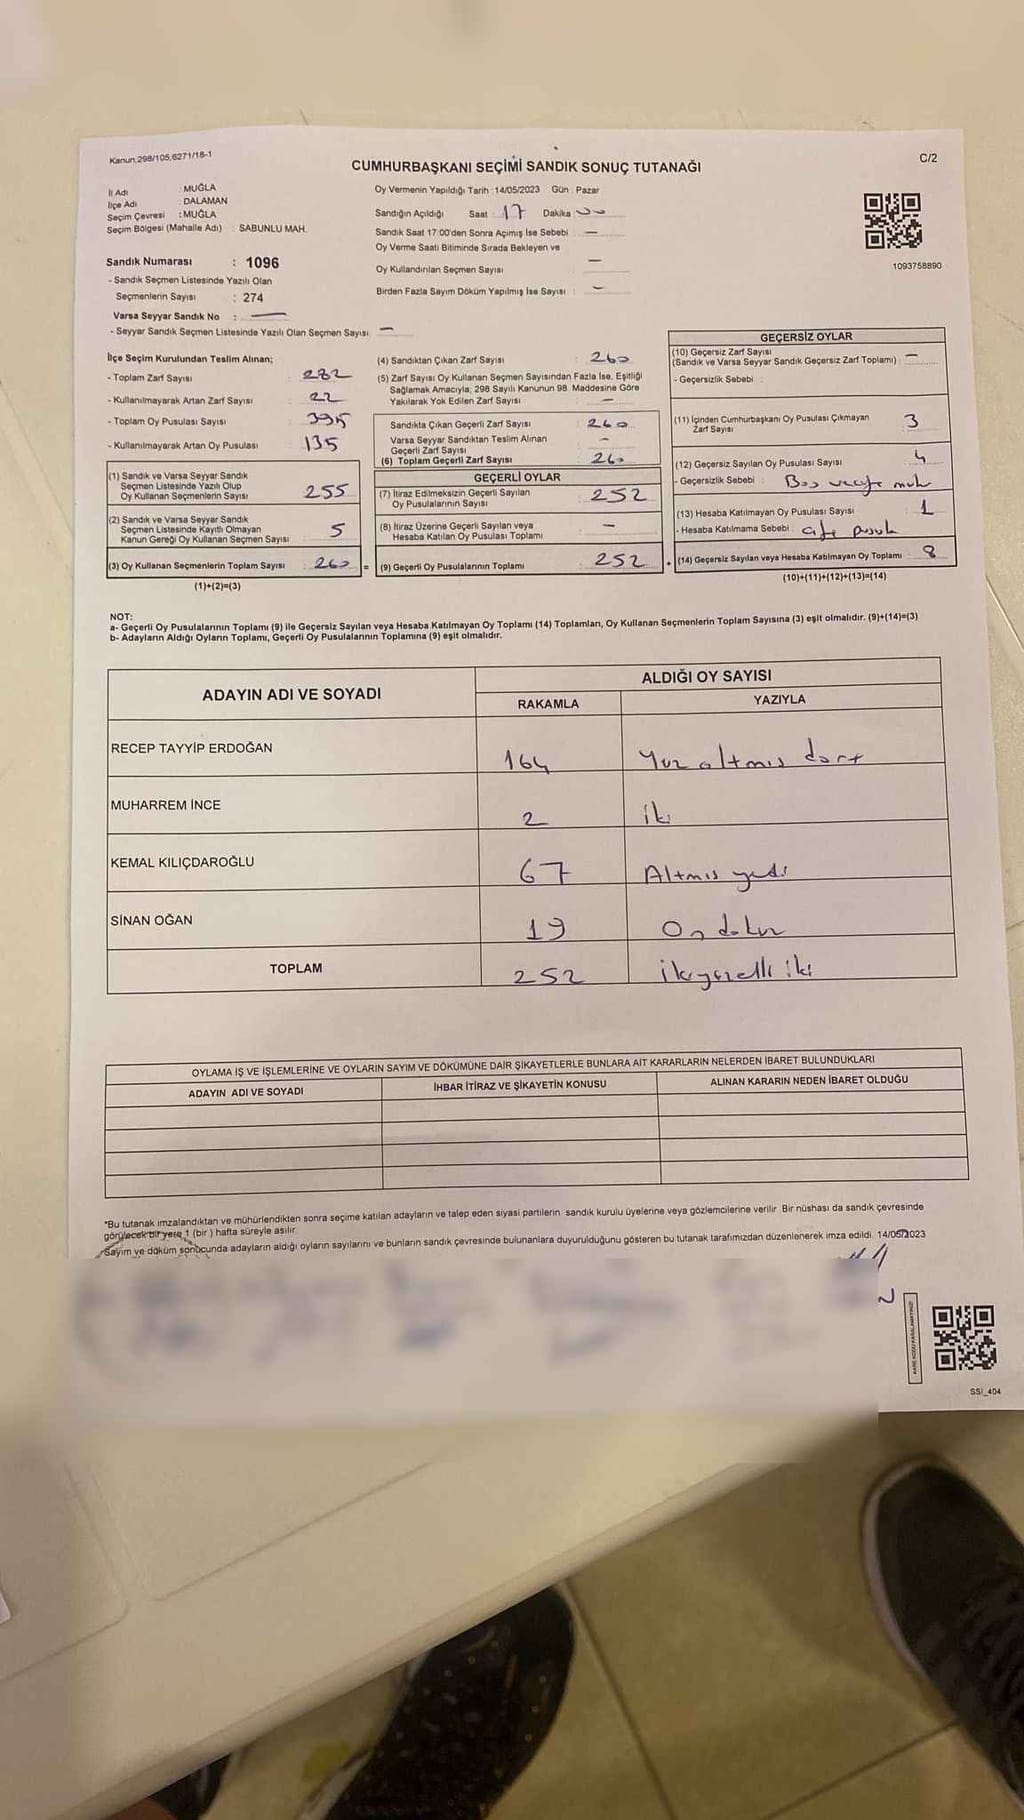 Kanun;298/105,6271/18-1
C/2
CUMHURBAŞKANI SEÇİMİ SANDIK SONUÇ TUTANAĞI
İl Adı : MUĞLA
İlçe Adı : DALAMAN
Seçim Çevresi : MUĞLA
Seçim Bölgesi (Mahalle Adı) : SABUNLU MAH.
Oy Vermenin Yapıldığı Tarih :14/05/2023 Gün : Pazar
Sandığın Açıldığı Saat : 17 Dakika 00
Sandık Saat 17:00'den Sonra Açımış İse Sebebi : —
Oy Verme Saati Bitiminde Sırada Bekleyen ve
Oy Kullandırılan Seçmen Sayısı : —
Birden Fazla Sayım Döküm Yapılmış İse Sayısı : —
1093758890
Sandık Numarası : 1096
- Sandık Seçmen Listesinde Yazılı Olan
Seçmenlerin Sayısı : 274
Varsa Seyyar Sandık No : —
- Seyyar Sandık Seçmen Listesinde Yazılı Olan Seçmen Sayısı : —
İlçe Seçim Kurulundan Teslim Alınan;
- Toplam Zarf Sayısı : 282
- Kullanılmayarak Artan Zarf Sayısı : 22
- Toplam Oy Pusulası Sayısı : 395
- Kullanılmayarak Artan Oy Pusulası : 135
(1) Sandık ve Varsa Seyyar Sandık
Seçmen Listesinde Yazılı Olup
Oy Kullanan Seçmenlerin Sayısı : 255
(2) Sandık ve Varsa Seyyar Sandık
Seçmen Listesinde Kayıtlı Olmayan
Kanun Gereği Oy Kullanan Seçmen Sayısı : 5
(3) Oy Kullanan Seçmenlerin Toplam Sayısı : 260 =
(1)+(2)=(3)
(4) Sandıktan Çıkan Zarf Sayısı : 260
(5) Zarf Sayısı Oy Kullanan Seçmen Sayısından Fazla İse, Eşitliği
Sağlamak Amacıyla; 298 Sayılı Kanunun 98. Maddesine Göre
Yakılarak Yok Edilen Zarf Sayısı : —
Sandıkta Çıkan Geçerli Zarf Sayısı : 260
Varsa Seyyar Sandıktan Teslim Alınan
Geçerli Zarf Sayısı : —
(6) Toplam Geçerli Zarf Sayısı : 260
GEÇERLİ OYLAR
(7) İtiraz Edilmeksizin Geçerli Sayılan
Oy Pusulalarının Sayısı : 252
(8) İtiraz Üzerine Geçerli Sayılan veya
Hesaba Katılan Oy Pusulası Toplamı : —
(9) Geçerli Oy Pusulalarının Toplamı : 252 +
GEÇERSİZ OYLAR
(10) Geçersiz Zarf Sayısı
(Sandık ve Varsa Seyyar Sandık Geçersiz Zarf Toplamı) : —
- Geçersizlik Sebebi :
(11) İçinden Cumhurbaşkanı Oy Pusulası Çıkmayan
Zarf Sayısı : 3
(12) Geçersiz Sayılan Oy Pusulası Sayısı : 4
- Geçersizlik Sebebi : Boş
(13) Hesaba Katılmayan Oy Pusulası Sayısı : 1
- Hesaba Katılmama Sebebi : pusula
(14) Geçersiz Sayılan veya Hesaba Katılmayan Oy Toplamı : 8
(10)+(11)+(12)+(13)=(14)
NOT:
a- Geçerli Oy Pusulalarının Toplamı (9) ile Geçersiz Sayılan veya Hesaba Katılmayan Oy Toplamı (14) Toplamları, Oy Kullanan Seçmenlerin Toplam Sayısına (3) eşit olmalıdır. (9)+(14)=(3)
b- Adayların Aldığı Oyların Toplamı, Geçerli Oy Pusulalarının Toplamına (9) eşit olmalıdır.
ADAYIN ADI VE SOYADI
ALDIĞI OY SAYISI
RAKAMLA YAZIYLA
RECEP TAYYİP ERDOĞAN 164 Yüz altmış dört
MUHARREM İNCE 2 iki
KEMAL KILIÇDAROĞLU 67 Altmış yedi
SİNAN OĞAN 19 On dokuz
TOPLAM 252 ikiyüzelli iki
OYLAMA İŞ VE İŞLEMLERİNE VE OYLARIN SAYIM VE DÖKÜMÜNE DAİR ŞİKAYETLERLE BUNLARA AİT KARARLARIN NELERDEN İBARET BULUNDUKLARI
ADAYIN ADI VE SOYADI İHBAR İTİRAZ VE ŞİKAYETİN KONUSU ALINAN KARARIN NEDEN İBARET OLDUĞU
*Bu tutanak imzalandıktan ve mühürlendikten sonra seçime katılan adayların ve talep eden siyasi partilerin sandık kurulu üyelerine veya gözlemcilerine verilir. Bir nüshası da sandık çevresinde
görülecek bir yere 1 (bir) hafta süreyle asılır.
Sayım ve döküm sonucunda adayların aldığı oyların sayılarını ve bunların sandık çevresinde bulunanlara duyurulduğunu gösteren bu tutanak tarafımızdan düzenlenerek imza edildi. 14/05/2023
SSI_404